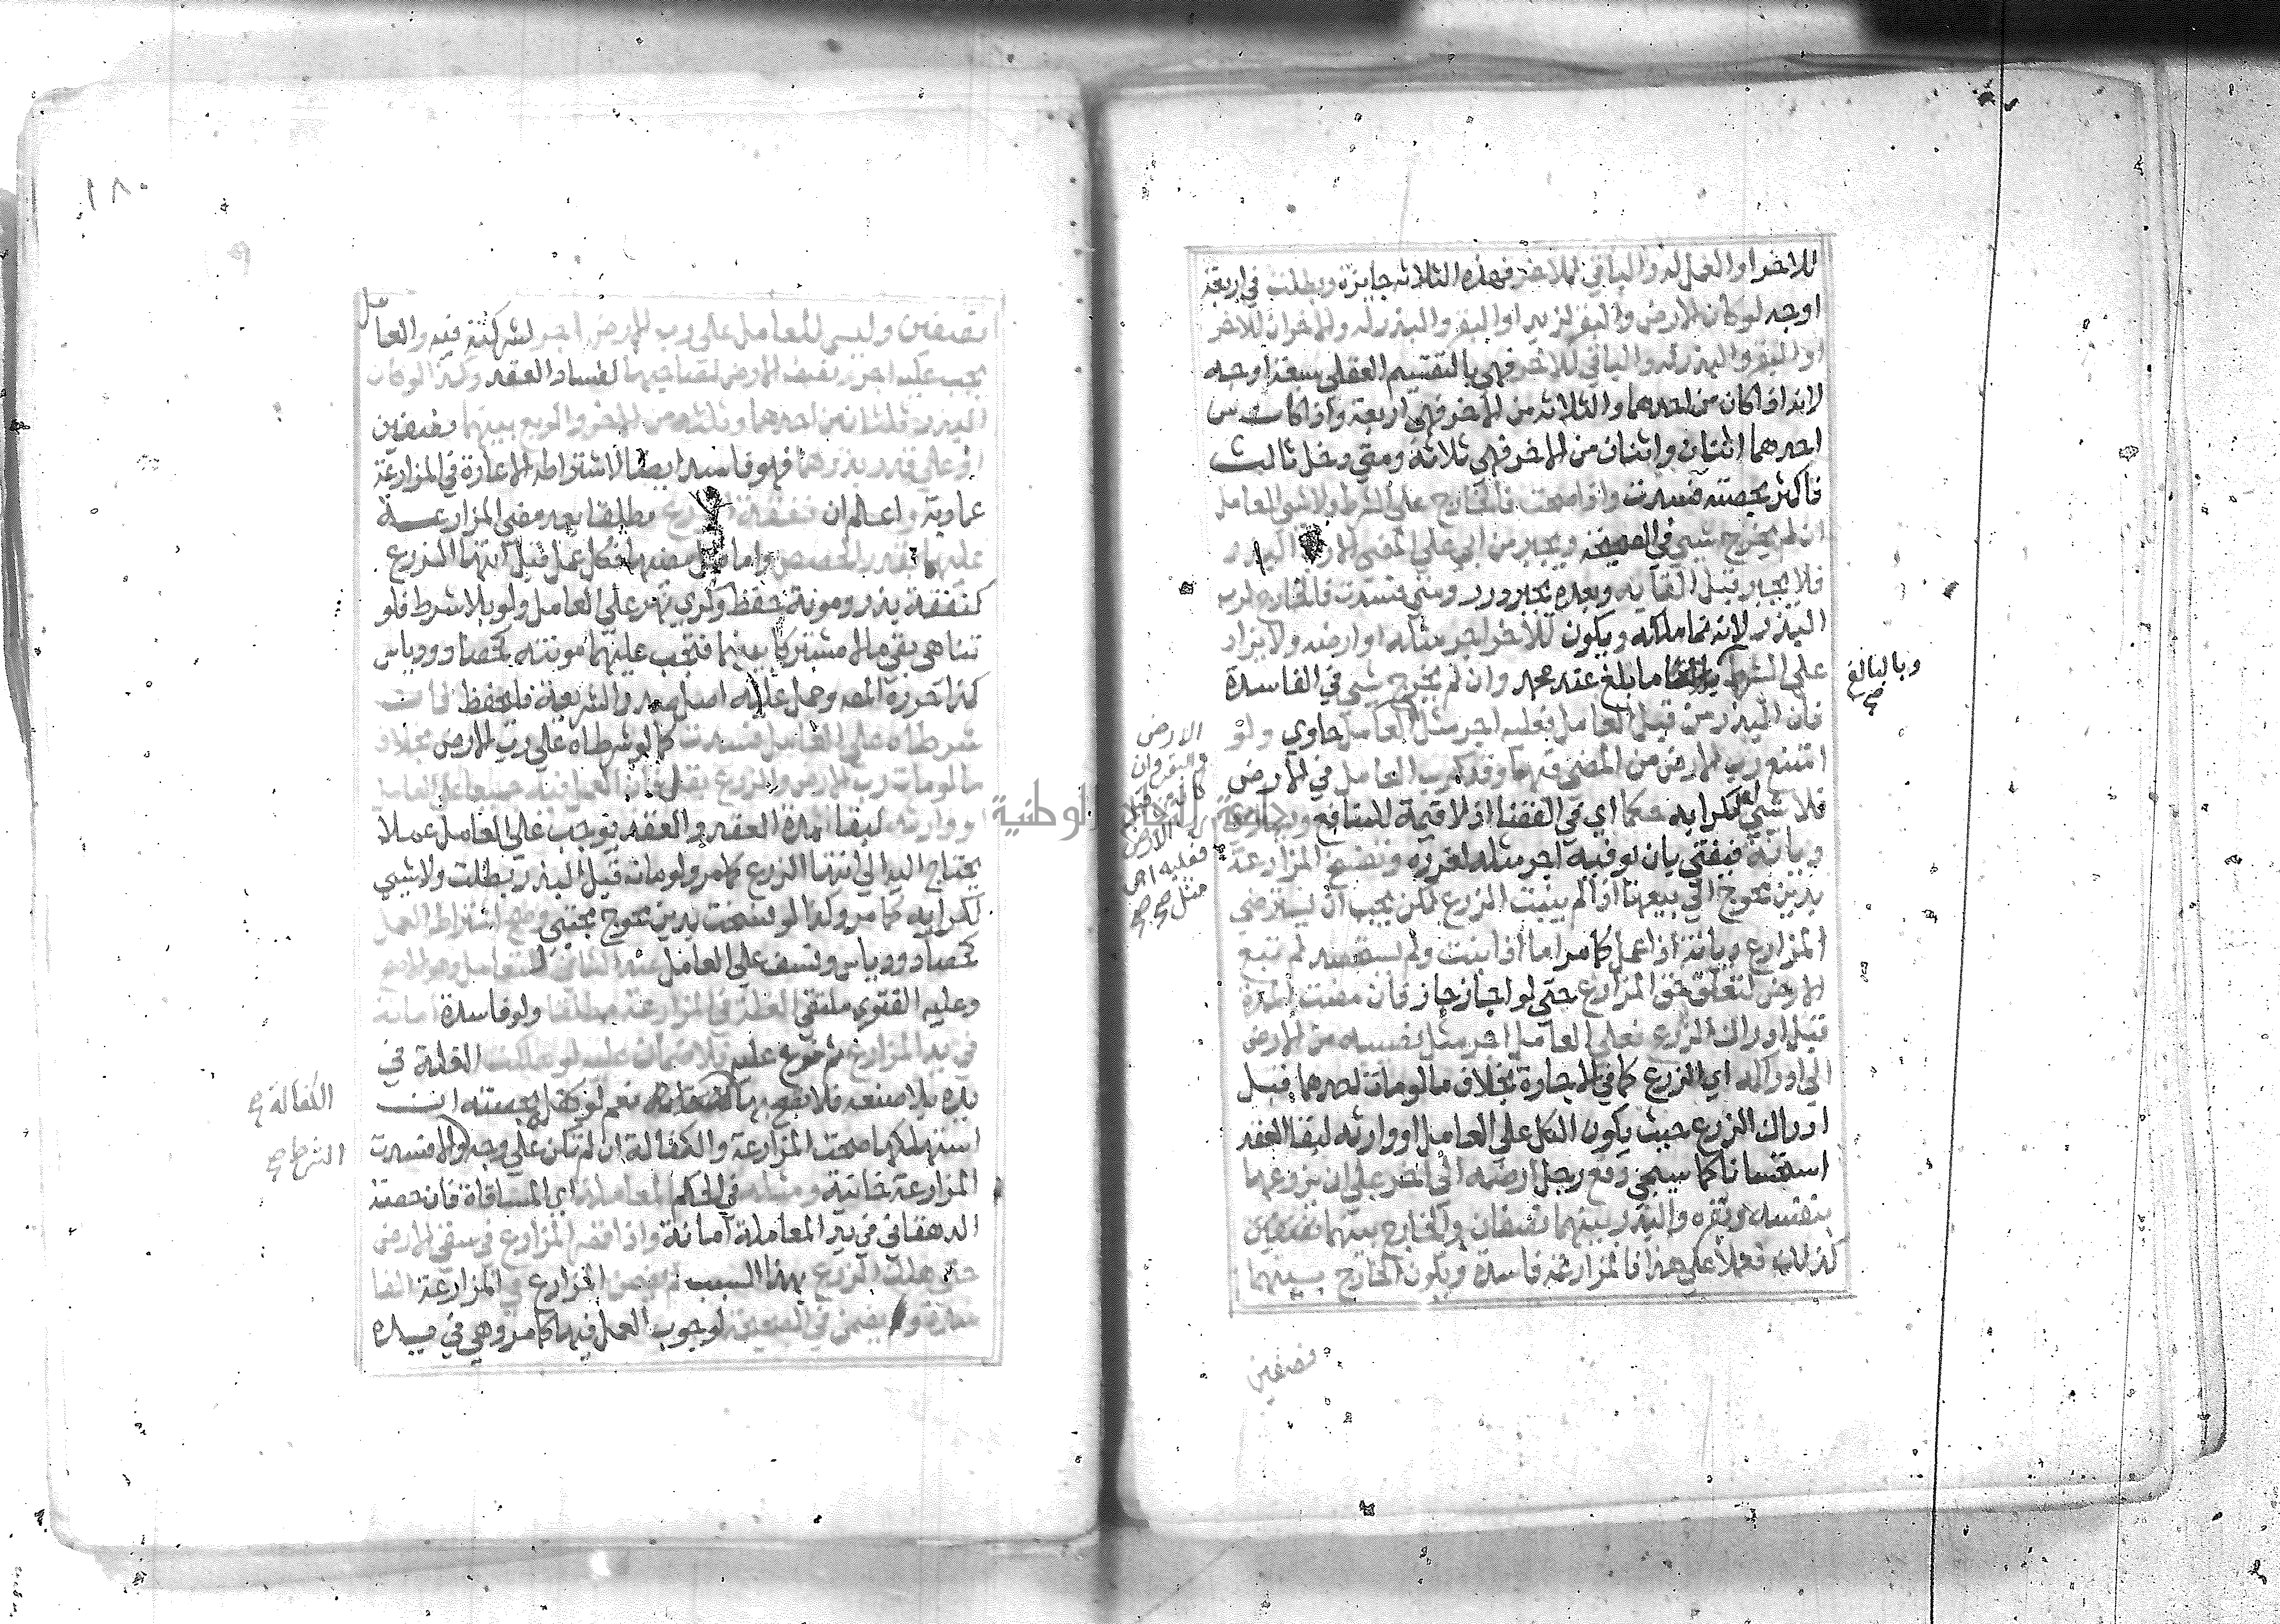 للاخر او العمل له والباقي للاخر فهذه الثلاثة جايزة وبطلت في اربعة
اوجه لو كان الارض والبقر لزيد او البقر والبذر له والاخران للاخر
او البقر والبذر له والباقي للاخر فهي بالتقسيم العقلي سبعة اوجه
لانه اذا كان من احدهما والثلاثة من الاخر فهي اربعة واذا كان من
احدهما اثنان واثنان من الاخر فهي ثلاثة ومتي دخل ثالث
فاكثر بحصته فسدت واذا صحت فالخارج علي الشرط ولا شي للعامل
ان لم يخرج شي في الصحيحة ويجبر من ابي علي المضي الا رب البذر
فلا يجبر قبل القايه وبعده يجبر درر ومتي فسدت فالخارج لرب
البذر لانه نما ملكه ويكون للاخر اجر مثله او ارضه ولا يزاد
علي الشرط ما بلغ عند محمد وان لم يخرج شي في الفاسدة
وبالبالغ
صح
فان البذر من قبل العامل فعليه اجر مثل العامل حاوي ولو
الارض
والبقر وان
كان من قبل
رب الارض
فعليه اجر
مثل صح صح
امتنع رب الارض من المضي فيها وقد كرب العامل في الارض
فلا شي لكرابه حكما اي في القضا اذ لا قيمة للمنافع ويسترضي
ديانة فيفتي بان يوفيه اجر مثله لغرره وتفسخ المزارعة
بدين محوج الي بيعها اذا لم ينبت الزرع لكن يجب ان يسترضي
المزارع ديانة اذا عمل كما مر اما اذا نبت ولم يستحصد لم تبع
الارض لتعلق حق المزارع حتي لو اجاز جاز فان مضت المدة
قبل ادراك الزرع فعلي العامل اجر مثل نصيبه من الارض
الي ادراكه اي الزرع كما في الاجارة بخلاف ما لو مات احدهما قبل
ادراك الزرع حيث يكون الكل علي العامل او وارثه لبقا العقد
استحسانا كما سيجي دفع رجل ارضه الي اخر علي ان يزرعها
بنفسه وبقره والبذر بينهما نصفان والخارج بينهما نصفين
كذلك فعملا علي هذا فالمزارعة فاسدة ويكون الخارج بينهما
نصفين
١٨٠
نصفين وليس للعامل علي رب الارض اجر لشركته فيه والعامل
يجب عليه اجر نصف الارض لصاحبها لفساد العقد وكذا لو كان
البذر ثلثاه من احدهما وثلثه من الاخر والريع بينهما نصفين
او علي قدر بذرهما فهو فاسد ايضا لاشتراطه الاعارة في المزارعة
عمادية واعلم ان نفقة الزرع مطلقا بعد مضي المزارعة
عليهما بقدر الحصص واما قبل مضيها فكل عمل قبل انتها الزرع
كنفقة بذر ومونة حفظ وكري نهر علي العامل ولو بلا شرط فلو
تناهي بقي مالا مشتركا بينهما فتجب عليهما مونته كحصاد ودياس
كذا حرره المص وحمل عليه اصل صدر الشريعة فليحفظ فان
شرطاه علي العامل فسدت كما لو شرطاه علي رب الارض بخلاف
ما لو مات رب الارض والزرع بقل فان العمل فيه جميعا علي العامل
او وارثه لبقا مدة العقد والعقد يوجب علي العامل عملا
يحتاج اليه الي انتها الزرع كما مر ولو مات قبل البذر بطلت ولا شي
لكرابه كما مر وكذا لو فسخت بدين محوج مجتبي وصح اشتراط العمل
كحصاد ودياس ونسف علي العامل عند الثاني للتعامل وهو الاصح
وعليه الفتوي ملتقي الغلة في المزارعة مطلقا ولو فاسدة امانة
في يد المزارع ثم فرع عليه فلا ضمان عليه لو هلكت الغلة في
يده بلا صنعه فلا تصح بها نعم لو كفل بحصته ان
الكفالة صح
استهلكها صحت المزارعة والكفالة ان لم تكن علي وجه والا فسدت
الشرط صح
المزارعة خانية ومثله في الحكم المعاملة اي المساقاة فان حصة
الدهقان في يد المعاملة امانة واذا قصر المزارع في سقي الارض
حتي هلك الزرع بهذا السبب لم يضمن المزارع في المزارعة الفا
سدة ويضمن في الصحيحة لوجوب العمل فيها كما مر وهي في يده
جامعة النجاح الوطنية